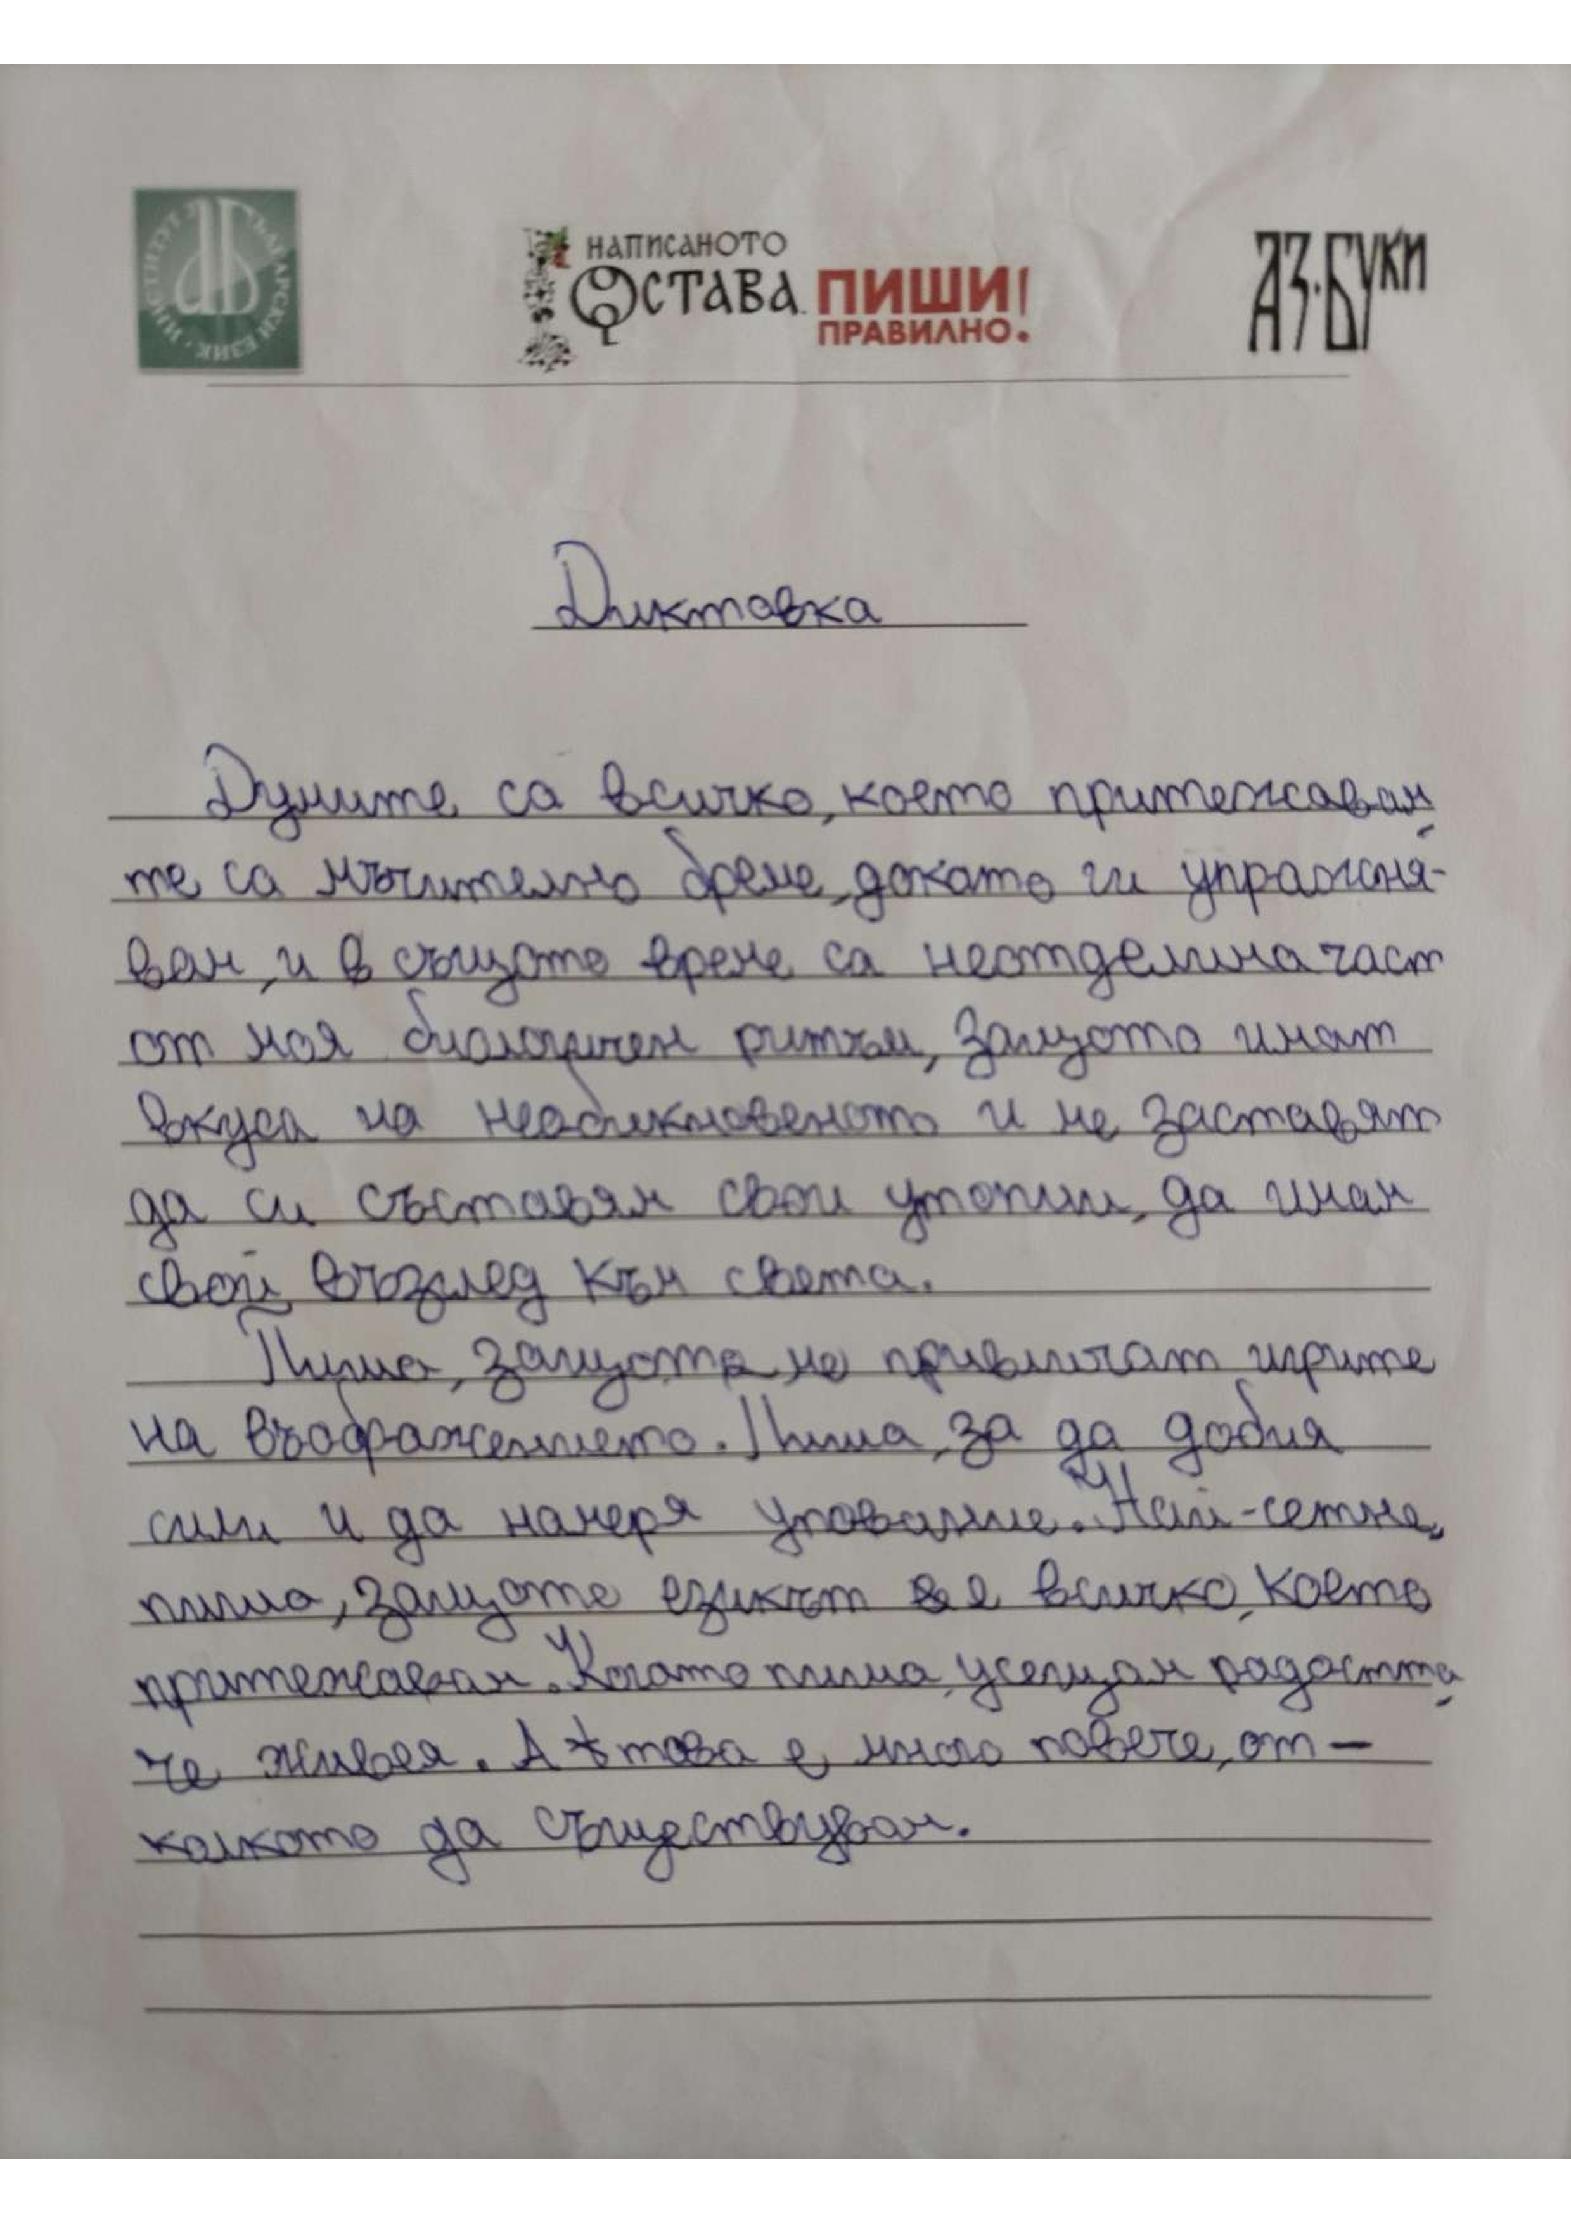 ИНСТИТУТ ЗА БЪЛГАРСКИ ЕЗИК
НАПИСАНОТО
ОСТАВА. ПИШИ!
ПРАВИЛНО.
АЗ·БУКИ
Диктовка
Думите са всичко, което притежавам,
те са мъчително бреме, докато ги упражня-
вам, и в същото време са неотделима част
от моя биологичен ритъм, защото имат
вкуса на необикновеното и ме заставят
да си съставям свои утопии, да имам
свой възглед към света.
Пиша, защото ме привличат игрите
на въображението. Пиша, за да добия
сили и да намеря упование. Най-сетне,
пиша, защото езикът е всичко, което
притежавам. Когато пиша, усещам радостта,
че живея. А това е много повече, от-
колкото да съществувам.